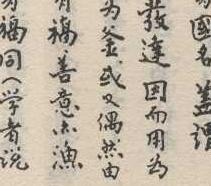 國名蓋謂
發達因而用為
為釜或又偶然由
福善意亦漁
福同(学者説